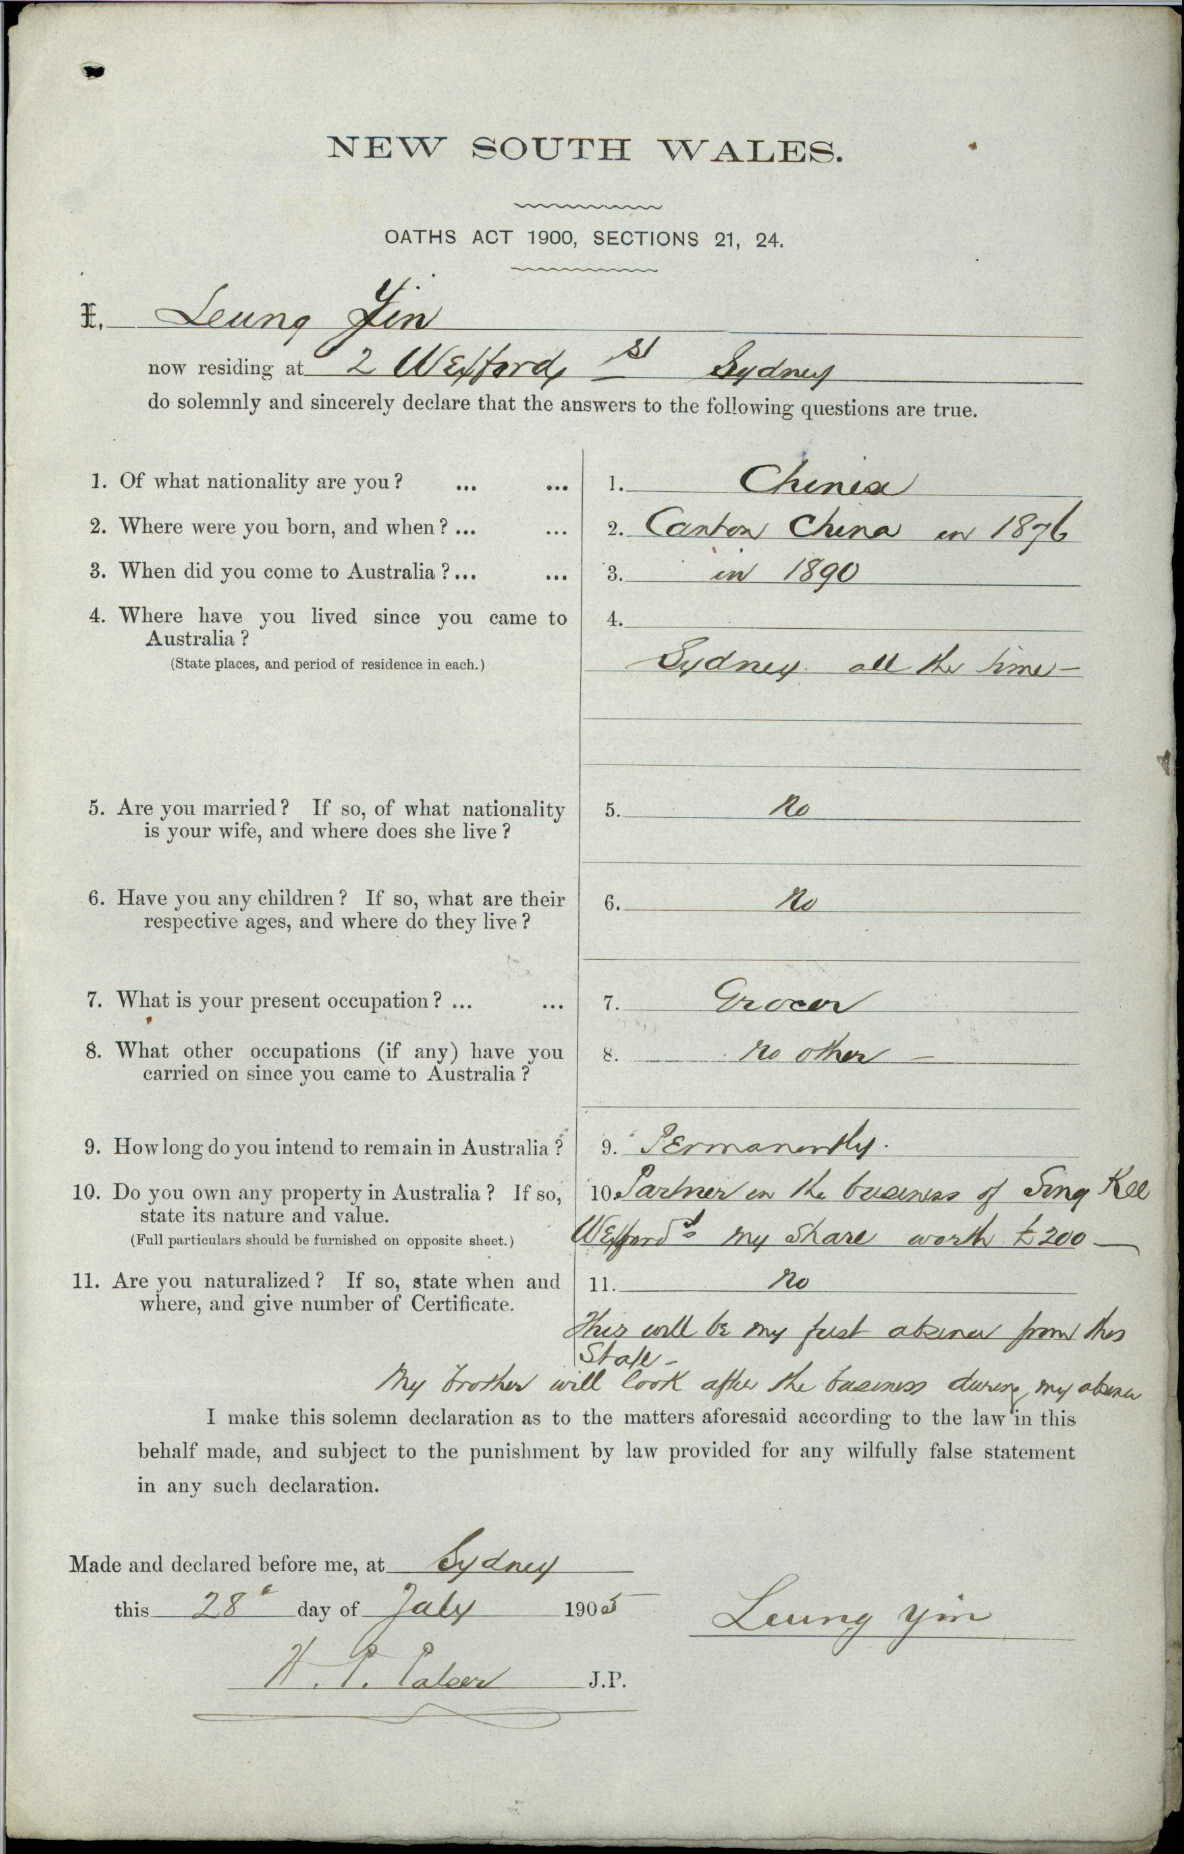 NEW SOUTH WALES.
OATHS ACT 1900, SECTIONS 21, 24.
I, Leung Yin
now residing at 2 Wexford St Sydney
do solemnly and sincerely declare that the answers to the following questions are true.
1. Of what nationality are you? ... ... 1. Chinese
2. Where were you born, and when? ... ... 2. Canton China in 1876
3. When did you come to Australia? ... ... 3. in 1890
4. Where have you lived since you came to 4.
Australia?
(State places, and period of residence in each.) Sydney all the time —
5. Are you married? If so, of what nationality 5. No
is your wife, and where does she live?
6. Have you any children? If so, what are their 6. No
respective ages, and where do they live?
7. What is your present occupation? ... ... 7. Grocer
8. What other occupations (if any) have you 8. no other —
carried on since you came to Australia?
9. How long do you intend to remain in Australia? 9. Permanently.
10. Do you own any property in Australia? If so, 10. Partner in the business of Sing Kee
state its nature and value. Wexford St my share worth £200 —
(Full particulars should be furnished on opposite sheet.)
11. Are you naturalized? If so, state when and 11. No
where, and give number of Certificate.
This will be my first absence from this
State —
My brother will look after the business during my absence
I make this solemn declaration as to the matters aforesaid according to the law in this
behalf made, and subject to the punishment by law provided for any wilfully false statement
in any such declaration.
Made and declared before me, at Sydney
this 28th day of July 1905
Leung Yin
H. P. Palser J.P.